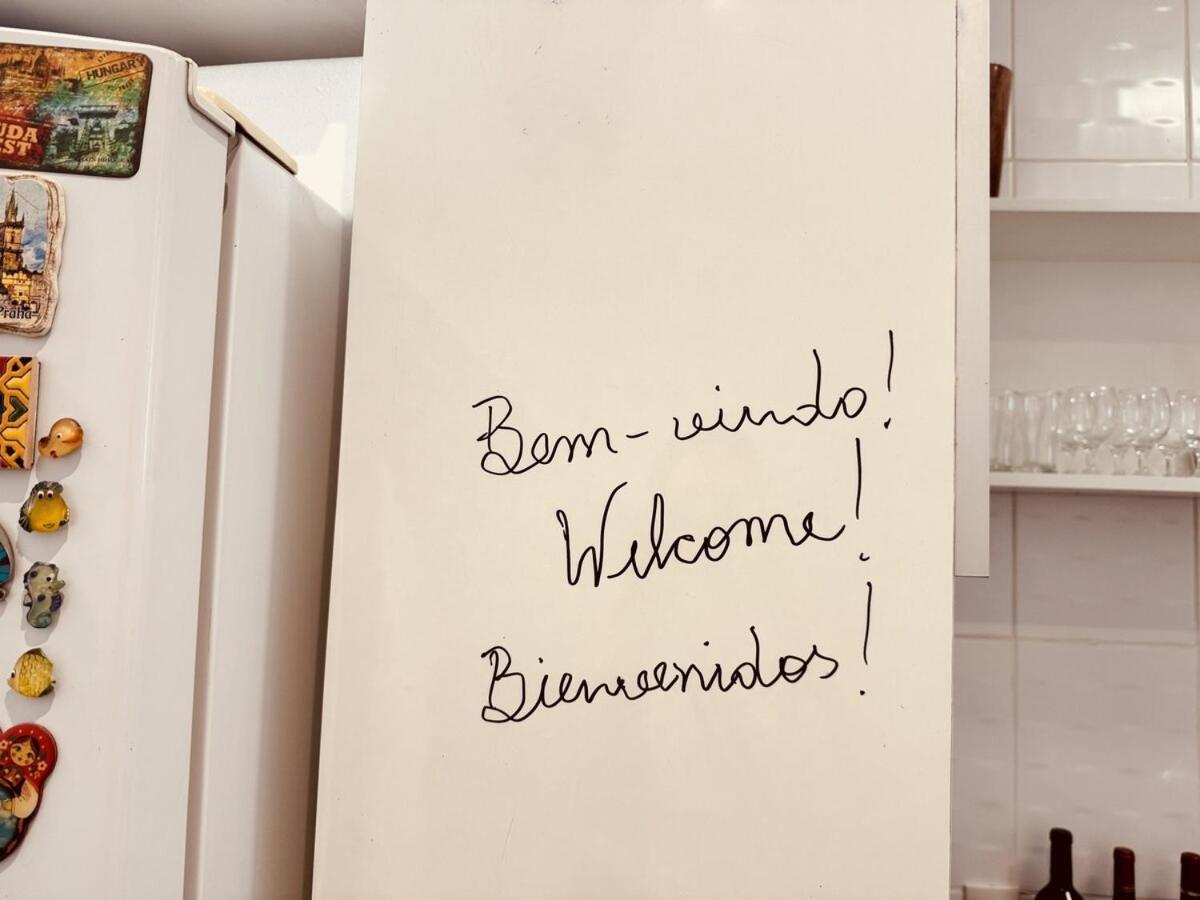 HUNGARY
UDA
EST
Praha
Bem-vindo!
Welcome!
Bienvenidos!